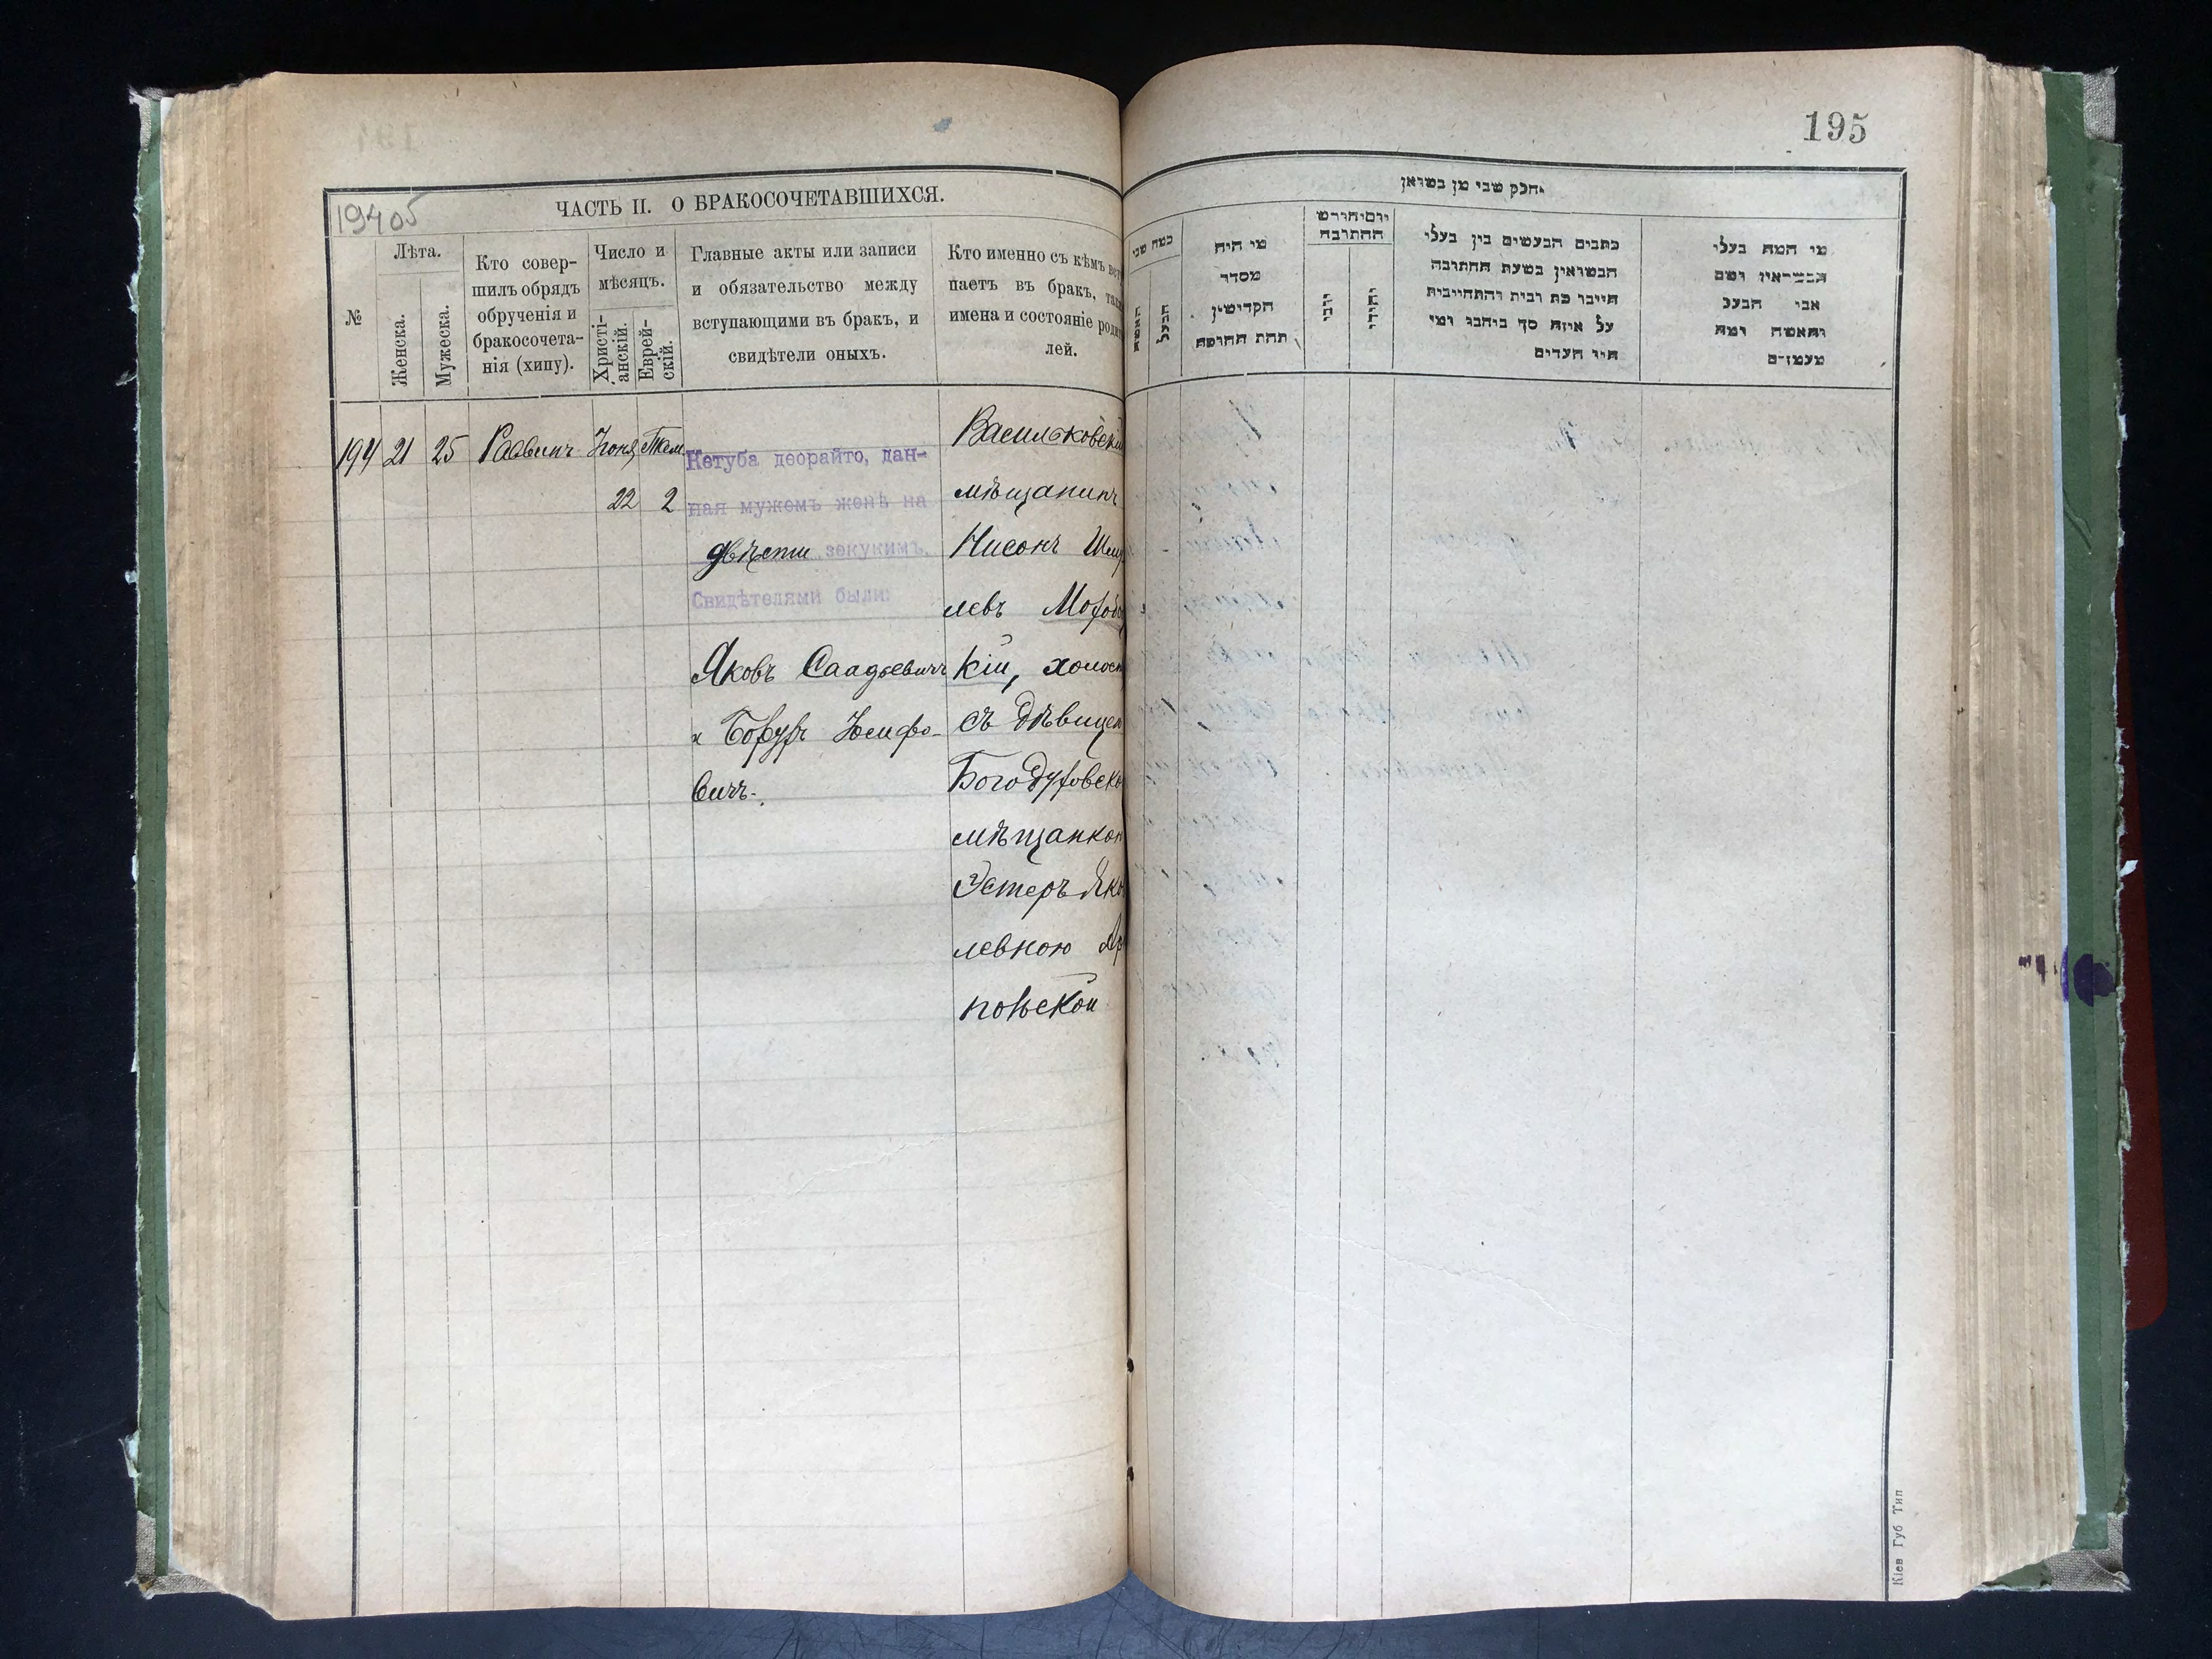 195
19405
ЧАСТЬ II. О БРАКОСОЧЕТАВШИХСЯ.
№
Лѣта.
Женска.
Мужеска.
Кто совер-
шилъ обрядъ
обрученія и
бракосочета-
нія (хипу).
Число и
мѣсяцъ.
Христі-
анскій.
Еврей-
скій.
Главные акты или записи
и обязательство между
вступающими въ бракъ, и
свидѣтели оныхъ.
Кто именно съ кѣмъ всту
паетъ въ бракъ, так
имена и состояніе роди
лей.
194 21 25 Раввинъ Іюня Там
22 2
Кетуба деорайто, дан-
ная мужемъ женѣ на
двѣсти зекукимъ.
Свидѣтелями были:
Яковъ Саадьевичъ
и Борухъ Іосифо-
вичъ.
Васильковскій
мѣщанинъ
Нисонъ
левъ
кій, холост
съ дѣвицей
Богодуховско
мѣщанкой
Эстеръ Яко
левною

חלק שני מן נשואין
כמה שני
האשה
הבעל
מי היה
מסדר
הקדישין
תחת החופה
יום וחורש
החתובה
רוסי
יהודי
כתבים הנעשים בין בעלי
הנשואין בשעת החתובה
על איזה סך ניתנו ומי
היו העדים
מי המה בעלי
הנשואין ושם
אבי הבעל
והאשה ומה
מעמדם
Кіев Губ Тип